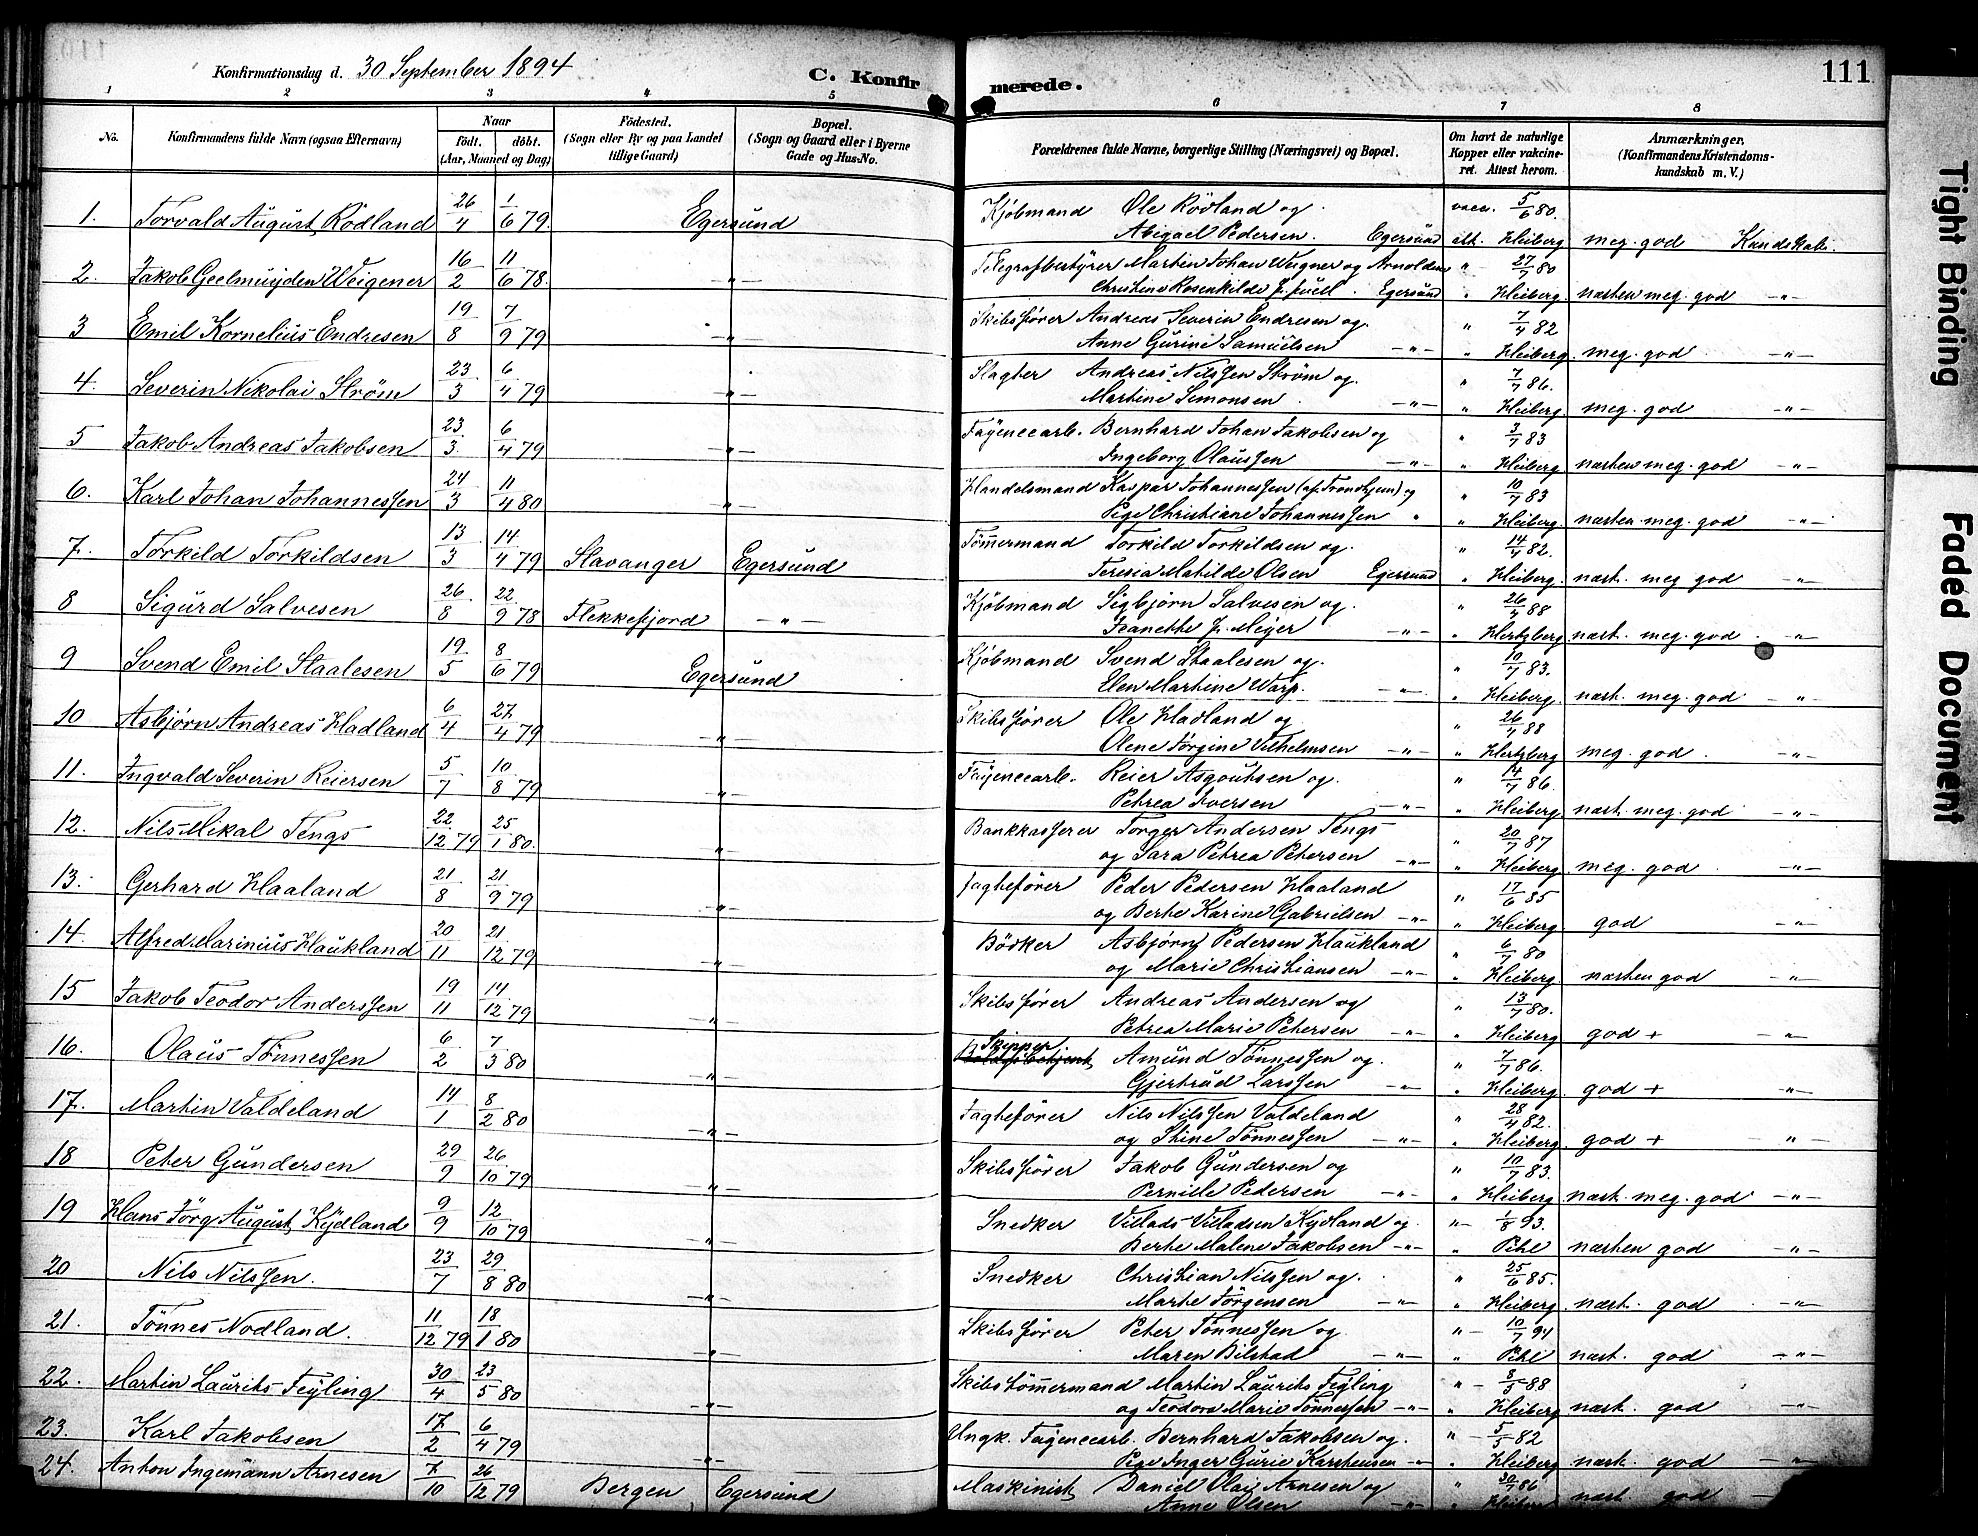 Konfirmationsdag d. 30 September 1894 C. Konfirmerede. 111
1 2 3 4 5 6 7 8
No. Konfirmandens fulde Navn (ogsaa Efternavn) Naar født. døbt. (Aar, Maaned og Dag) Fødested. (Sogn eller By og paa Landet tillige Gaard) Bopæl. (Sogn og Gaard eller i Byerne Gade og Hus-No. Forældrenes fulde Navne, borgerlige Stilling (Næringsvei) og Bopæl. Om havt de naturlige Kopper eller vakcineret. Attest herom. Anmærkninger. (Konfirmandens Kristendomskundskab m. V.)
1. Torvald August Rödland 26/4 1/6 79. Egersund Kjöbmand Ole Rödland og vacc. 5/6 80.
Abigael Pedersen. Egersund att. Heiberg meg. god Kundskab.
2. Jakob Geelmuijden Weigener 16/2 11/6 78. -"- Telegrafbestyrer Martin Johan Weigner og Arnoldine " 27/7 80
Christine Rosenkilde f. Juell. Egersund " Heiberg. næsten meg. god -"-
3 Emil Kornelius Endresen 19/8 7/9 79 -"- Skibsfører Andreas Severin Endresen og. " 7/4 82
Anne Gurine Samuelsen -"- " Heiberg. meg. god -"-
4. Severin Nikolai Strøm 23/3 6/4 79 -"- Slagter Andreas Nilssen Strøm og. " 7/7 86.
Martine Simonsen -"- " Heiberg meg. god -"-
5 Jakob Andreas Jakobsen 23/3. 6/4 79 -"- Fayencearb. Bernhard Johan Jakobsen og " 3/7 83
Ingeborg Olaussen -"- " Heiberg næsten meg. god -"-
6. Karl Johan Johannessen 24/3 11/4 80 -"- Handelsmand Kaspar Johannessen (af Trondhjem) og " 10/7 83
Pige Christiane Johannessen " " Heiberg næsten meg. god -"-
7. Torkild Torkildsen 13/3 14/4 79 Stavanger Egersund Tömmermand Torkild Torkildsen og. " 14/7 82.
Teresia Matilde Olsen Egersund " Heiberg. næst. meg god -"-
8 Sigurd Salvesen 26/8 22/9 78 Flekkefjord -"- Kjöbmand Sigbjørn Salvesen og. " 26/7 88
Jeanette f. Meyer -"- " Hertzberg næst. meg. god. -"-
9 Svend Emil Staalesen 19/5 8/6 79 Egersund Kjöbmand Svend Staalesen og. " 10/7 83.
Elen Martine Warp. -"- " Heiberg. næst. meg. god -"-
10 Asbjørn Andreas Hadland 6/4 27/4 79 -"- Skibsfører Ole Hadland og " 26/7 88
Olene Jørgine Vilhelmsen -"- " Hertzberg meg. god. -"-
11. Ingvald Severin Reiersen 5/7 10/8 79 -"- Fayencearb. Reier Asgoutsen og. " 14/7 86.
Petrea Iversen -"- " Heiberg næst. meg. god -"-
12. Nils Mikal Tengs 22/12 79 25/1 80. -"- Bankkasserer Torger Andersen Tengs " 20/7 87
og Sara Petrea Petersen -"- " Heiberg meg. god -"-
13. Gerhard Haaland 21/8 21/9 79 -"- Jagtefører Peder Pedersen Haaland " 17/6 85
og Berte Karine Gabrielsen -"- " Heiberg god -"-
14. Alfred Marinius Haukland 20/11 21/12 79 -"- Bödker Asbjørn Pedersen Haukland " 6/7 80
og Marie Christiansen -"- " Heiberg næsten god -"-
15 Jakob Teodor Anderssen 19/11 14/12 79 -"- Skibsfører Andreas Andersen og " 13/7 80.
Petrea Marie Petersen -"- " Heiberg god + -"-
16. Olaus Tönnessen 6/2 7/3 80 -"- Skipper Amund Tönnessen og. " 7/7 86.
Gjertrud Larssen -"- " Heiberg. god + -"-
17. Martin Valdeland 14/1 8/2 80 -"- Jagtefører Nils Nilssen Valdeland " 28/4 82.
og Stine Tönnessen -"- " Heiberg god + -"-
18 Peter Gundersen 29/9 26/10 79 -"- Skibsfører Jakob Gundersen og " 10/7 83.
Pernille Pedersen -"- " Heiberg næst. meg. god -"-
19 Hans Jörg August Kydland 9/9 12/10 79 -"- Snedker Villads Villadsen Kydland og "- 1/8 93.
Berte Malene Jakobsen -"- " Pihl næsten god -"-
20 Nils Nilssen. 23/7 29/8 80 -"- Snedker Christian Nilssen og. " 25/6 85.
Marte Jørgensen -"- " Heiberg. næst. god -"-
21. Tönnes Nodland. 11/12 79 18/1 80 -"- Skibsfører Peter Tönnessen og "- 10/7 94
Maren Bilstad -"- " Pihl næst. god -"-
22. Martin Laurits Feyling 30/4 23/5 80 -"- Skibstömmermand Martin Laurits Feyling "- 8/5 88
og Teodora Marie Tönnessen -"- " Heiberg næst. god -"-
23. Karl Jakobsen 17/2 6/4 79 -"- Ungk. Fayencearb. Bernhard Jakobsen og. "- 5/5 82
Pige Inger Gurie Karstensen -"- " Heiberg næst. god -"-
24. Anton Ingemann Arnesen 7/10 26/12 79 Bergen Egersund Maskinist Daniel Olai Arnesen og " 30/7 86
Anne Olsen -"- " Heiberg næst. god
Tight Binding
Faded Document